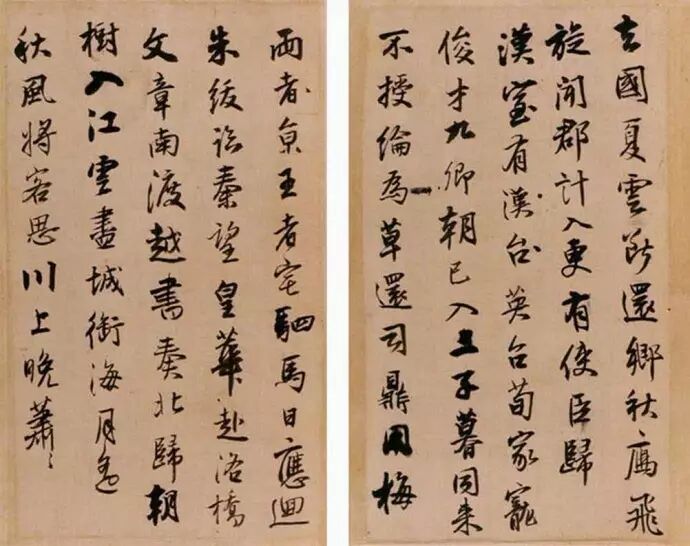 去國夏雲斷還鄉秋鴈飛
旋聞郡計入更有使臣歸
漢室有漢台英台荀家寵
俊才九卿朝已入三子暮同來
不授綸為草還司鼎用梅
兩都京王者宅駟馬日應迴
朱紱臨秦望皇華赴洛橋
文章南渡越書奏北歸朝
樹入江雲盡城銜海月遙
秋風將客思川上晚蕭〻